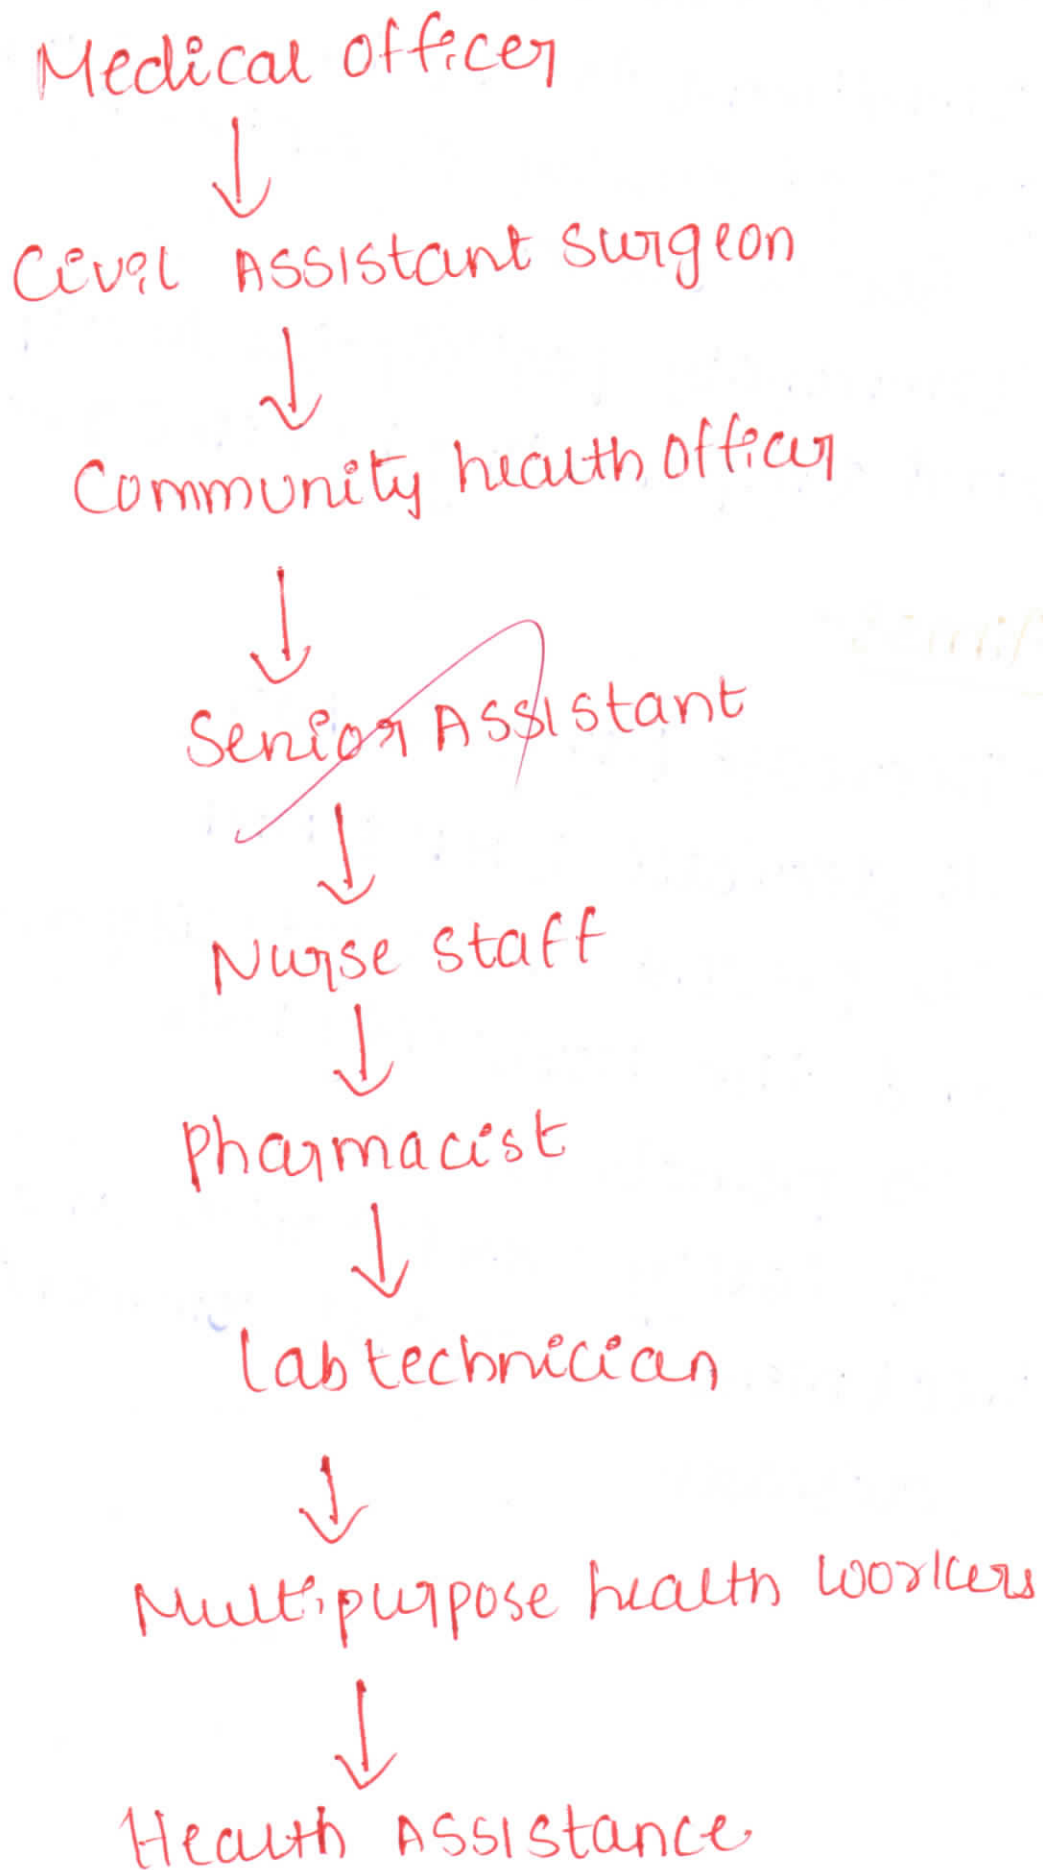 Medical officer
Civil Assistant surgeon
Community health officer
Senior Assistant
Nurse staff
Pharmacist
Lab technician
Multipurpose health workers
Health Assistance